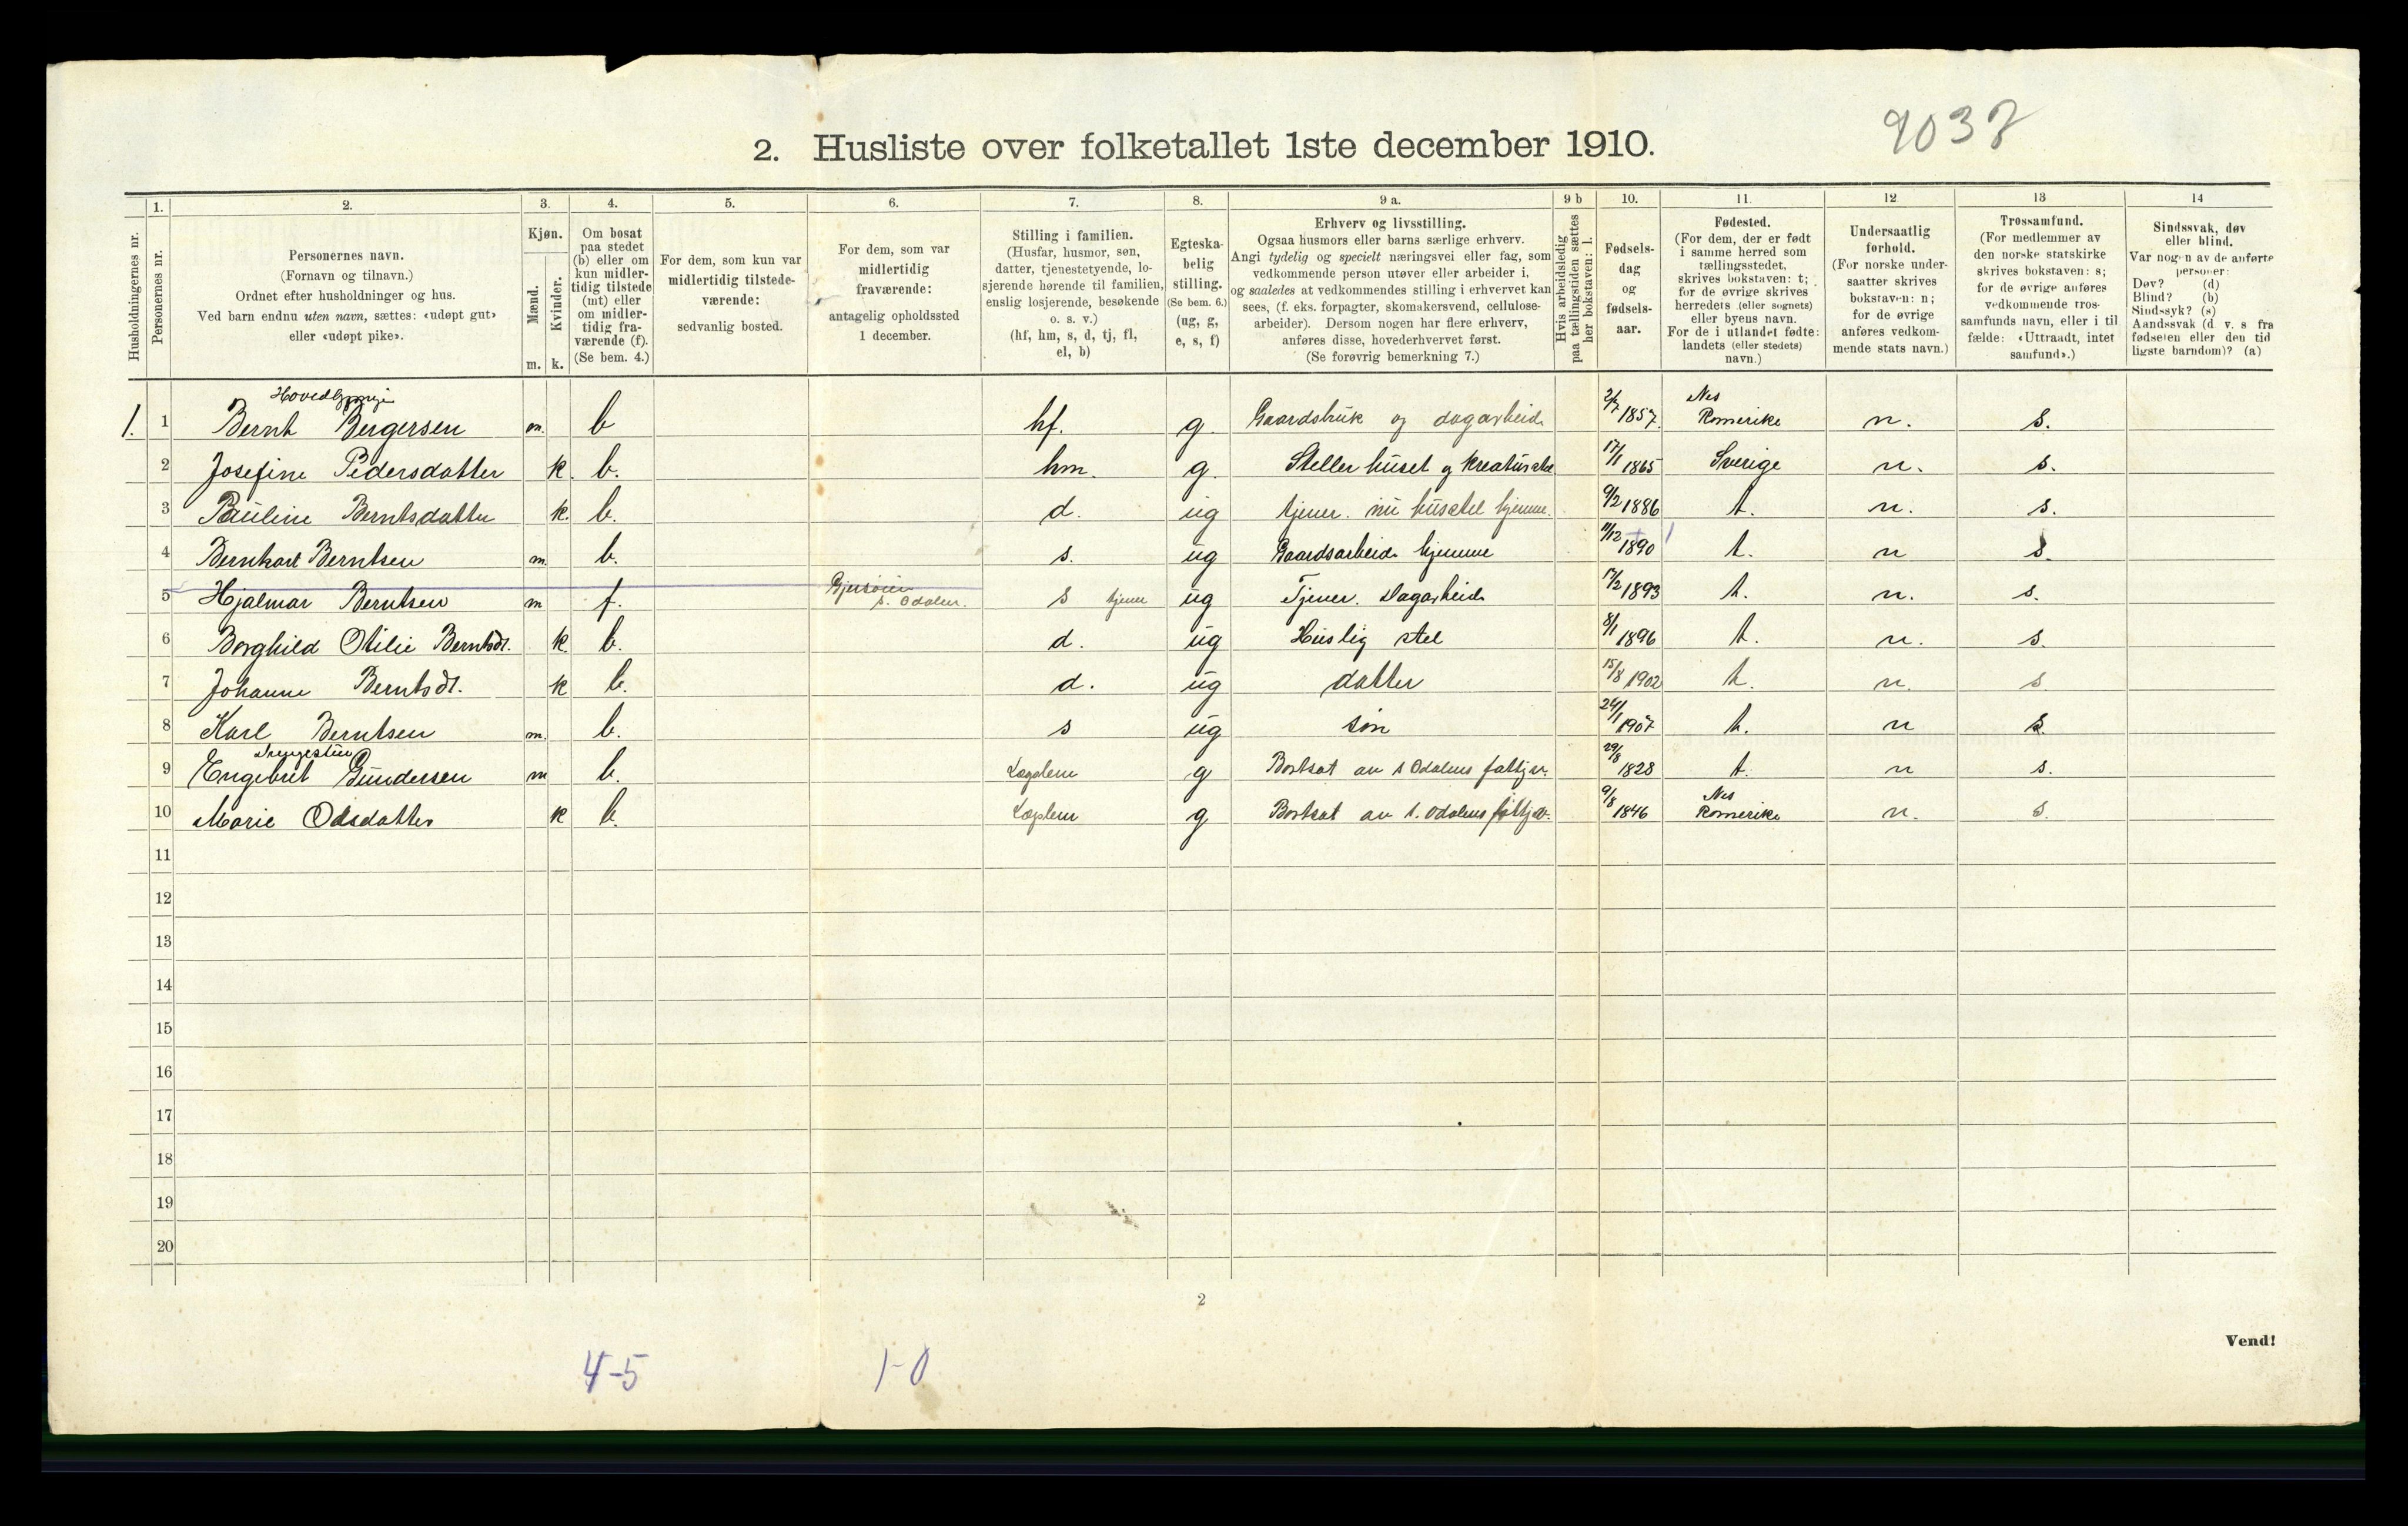 9037
2. Husliste over folketallet 1ste december 1910.
Husholdningernes nr.
1.
Personernes nr.
2.
Personernes navn.
(Fornavn og tilnavn.)
Ordnet efter husholdninger og hus.
Ved barn endnu uten navn, sættes: «udøpt gut»
eller «udøpt pike».
3.
Kjøn.
Mænd.
Kvinder.
m. k.
4.
Om bosat
paa stedet
(b) eller om
kun midler-
tidig tilstede
(mt) eller
om midler-
tidig fra-
værende (f).
(Se bem. 4.)
5.
For dem, som kun var
midlertidig tilstede-
værende:
sedvanlig bosted.
6.
For dem, som var
midlertidig
fraværende:
antagelig opholdssted
1 december.
7.
Stilling i familien.
(Husfar, husmor, søn,
datter, tjenestetyende, lo-
sjerende hørende til familien,
enslig losjerende, besøkende
o. s. v.)
(hf, hm, s, d, tj, fl,
el, b)
8.
Egteska-
belig
stilling.
(Se bem. 6.)
(ug, g,
e, s, f)
9 a.
Erhverv og livsstilling.
Ogsaa husmors eller barns særlige erhverv.
Angi tydelig og specielt næringsvei eller fag, som
vedkommende person utøver eller arbeider i,
og saaledes at vedkommendes stilling i erhvervet kan
sees, (f. eks. forpagter, skomakersvend, cellulose-
arbeider). Dersom nogen har flere erhverv,
anføres disse, hovederhvervet først.
(Se forøvrig bemerkning 7.)
9 b
Hvis arbeidsledig
paa tællingstiden sættes
her bokstaven: l.
10.
Fødsels-
dag
og
fødsels-
aar.
11.
Fødested.
(For dem, der er født
i samme herred som
tællingsstedet,
skrives bokstaven: t;
for de øvrige skrives
herredets (eller sognets)
eller byens navn.
For de i utlandet fødte:
landets (eller stedets)
navn.)
12
Undersaatlig
forhold.
(For norske under-
saatter skrives
bokstaven: n;
for de øvrige
anføres vedkom-
mende stats navn.)
13
Trossamfund.
(For medlemmer av
den norske statskirke
skrives bokstaven: s;
for de øvrige anføres
vedkommende tros-
samfunds navn, eller i til
fælde: «Uttraadt, intet
samfund».)
14
Sindssvak, døv
eller blind.
Var nogen av de anførte
personer:
Døv? (d)
Blind? (b)
Sindssyk? (s)
Aandssvak (d. v. s. fra
fødselen eller den tid
ligste barndom)? (a)
1. 1 Bernt Bergersen m. b hf. g. Gaardsbruk og dagarbeid 2/7 1857. Nes Romerike n. s.
2 Josefine Pedersdatter k. b. hm. g. Steller huset og kreaturstel 17/1 1865 Sverige n. s.
3 Pauline Berntsdatter k. b. d. ug tjener. nu husstel hjemme. 9/2 1886 t. n. s.
4 Bernhart Berntsen m. b. s. ug Gaardsarbeide hjemme 11/12 1890 t. n s.
5 Hjalmar Berntsen m f. s. Odalen. s tjener ug Tjener. Dagarbeide 17/2 1893 t. n. s.
6 Borghild Otilie Berntsdt. k. b. d. ug Huslig stel 8/1 1896 t. n. s.
7 Johanne Berntsdt. k b. d. ug datter 15/8 1902 t. n. s
8 Karl Berntsen m. b. s ug søn 24/1 1907 t. n s.
9 Engebret Gundersen m b. Lægslem g Bortsat av s Odalens fattigv. 29/8 1828 t. n s.
10 Marie Olsdatter k b. Lægslem g Bortsat av s. Odalens fattigv. 9/8 1846 Nes Romerike n. s.
11
12
13
14
15
16
17
18
19
20
2
Vend!
4-5
1-0